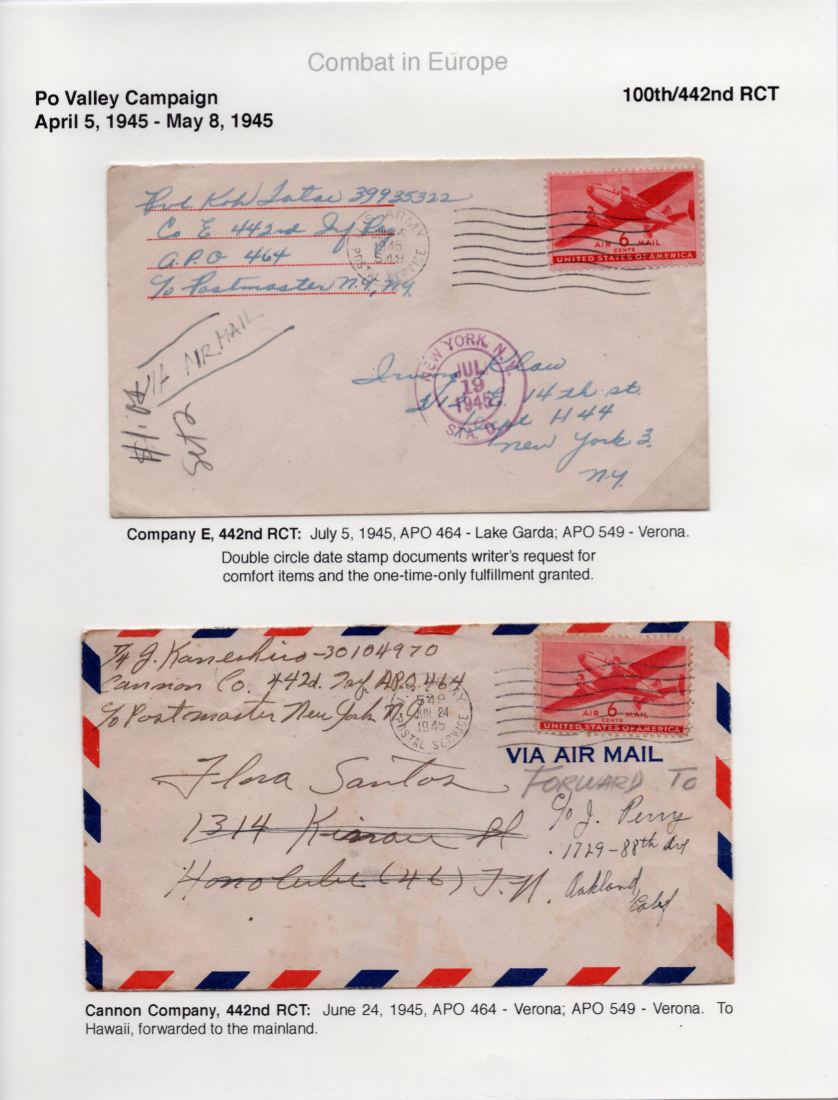 Combat in Europe
Po Valley Campaign
April 5, 1945 - May 8, 1945
100th/442nd RCT
Pvt. Koh 39935322
Co E 442nd Inf
A.P.O 464
c/o Postmaster N.Y. N.Y.
U.S. ARMY
1945
549
POSTAL SERVICE
AIR 6 MAIL
CENTS
UNITED STATES OF AMERICA
AIR MAIL
Set 2
NEW YORK, N.Y.
JUL
19
1945
STA. O
Irving Klaw
14th st.
Dept H44
New York 3.
N.Y.
Company E, 442nd RCT: July 5, 1945, APO 464 - Lake Garda; APO 549 - Verona.
Double circle date stamp documents writer's request for
comfort items and the one-time-only fulfillment granted.
T/4 J. Kaneshiro-30104970
Cannon Co. 442d. Inf APO 464
c/o Postmaster New York N.Y.
549
JUN 24
1945
POSTAL SERVICE
AIR 6 MAIL
CENTS
UNITED STATES OF AMERICA
VIA AIR MAIL
FORWARD TO
Flora Santos
1314 Kinau St
Honolulu (46) T.H.
c/o J. Perry
1729-88th Ave
Oakland,
Calif
Cannon Company, 442nd RCT: June 24, 1945, APO 464 - Verona; APO 549 - Verona. To
Hawaii, forwarded to the mainland.